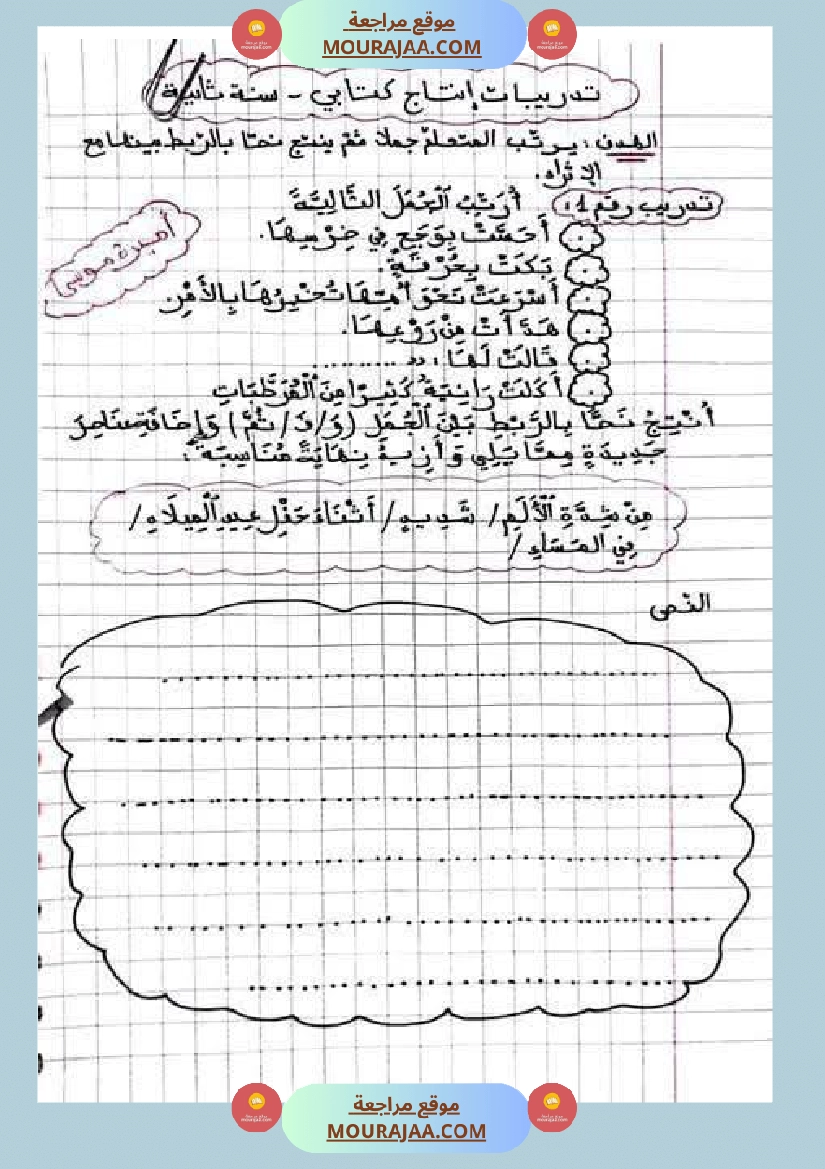 موقع مراجعة
MOURAJAA.COM
تدريبات إنتاج كتابي - سنة ثانية
الهدف : يرتّب المتعلّم جملا ثمّ ينتج نصّا بالرّبط بينها مع
الإثراء.
تدريب رقم 1 : أُرَتِّبُ الْجُمَلَ التَّالِيَةَ
أَحَسَّتْ بِوَجَعٍ فِي ضِرْسِهَا.
بَكَتْ بِحُرْقَةٍ.
أَسْرَعَتْ نَحْوَ أُمِّهَا تُخْبِرُهَا بِالأَمْرِ
هَدَّأَتْ مِنْ رَوْعِهَا.
قَالَتْ لَهَا : " ..........
أَكَلَتْ رَانِيَةُ كَثِيرًا مِنَ الْمُرَطَّبَاتِ
أميرة موسى
أُنْتِجُ نَصًّا بِالرَّبْطِ بَيْنَ الْجُمَلِ (وَ/فَ/ثُمَّ) وَإِضَافَةِ عَنَاصِرَ
جَدِيدَةٍ مِمَّا يَلِي وَأَزِيدُ نِهَايَةً مُنَاسِبَةً :
مِنْ شِدَّةِ الْأَلَمِ / شَدِيدٍ / أَثْنَاءَ حَفْلِ عِيدِ الْمِيلَادِ /
فِي الْمَسَاءِ /
النّص
موقع مراجعة
MOURAJAA.COM